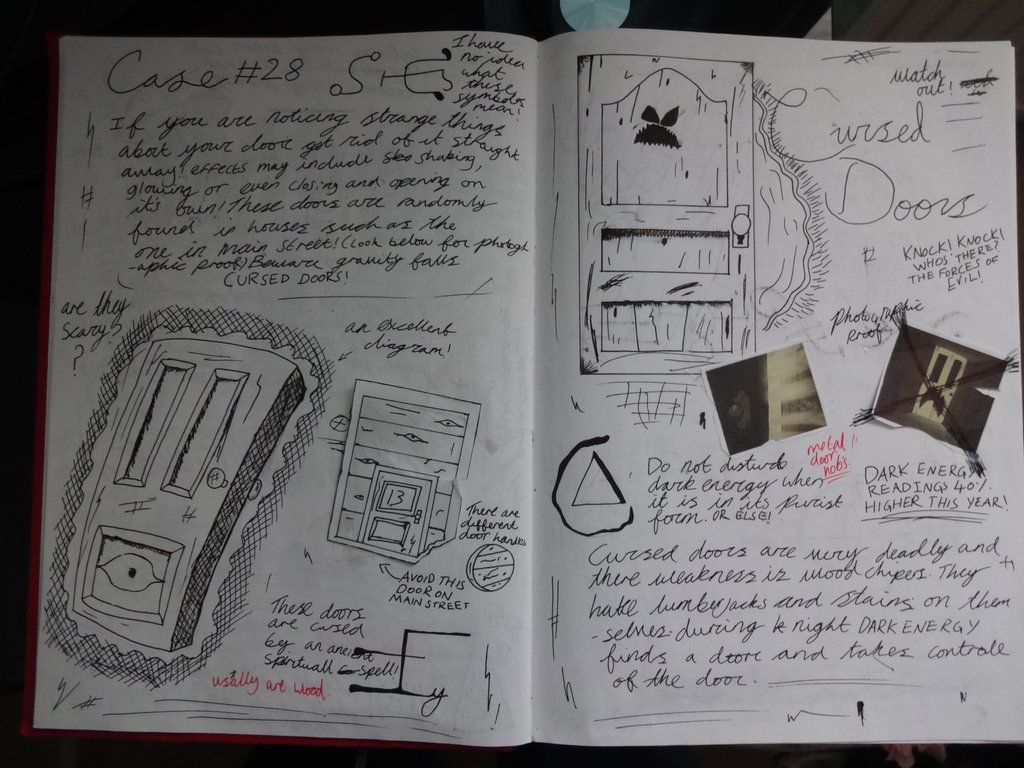 Case #28
I have
no idea
what
these
symbols
mean!
If you are noticing strange things
about your door get rid of it straight
away! effects may include shaking,
glowing or even closing and opening on
it's own! These doors are randomly
found in houses such as the
one in main street! (look below for photogr
-aphic proof) Beware gravity falls
CURSED DOORS!
are they
scary?
?
an excellent
diagram!
13
There are
different
door handles
AVOID THIS
DOOR ON
MAIN STREET
These doors
are cursed
by: an ancient
spirituall spell!
usually are wood
watch
out!
Cursed
Doors
KNOCK! KNOCK!
WHOS THERE?
THE FORCES OF
EVIL!
photographic
proof
metal
door
nobs.
Do not disturb
dark energy when
it is in its purist
form. OR ELSE!
DARK ENERGY
READINGS 40%
HIGHER THIS YEAR!
Cursed doors are very deadly and
there weakness is wood chipers. They
hate lumberjacks and stains on them
-selves. during night DARK ENERGY
finds a door and takes controle
of the door.